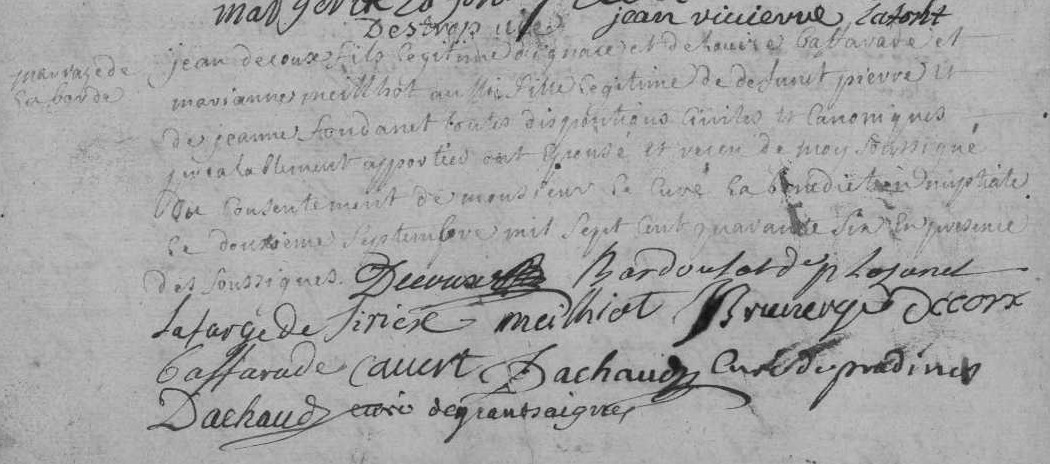 jean
Destrop
mariage de
la borde
jean decoux fils legitime d'ignace et de louise baffarade et
marianne meilhot aussi fille legitime de defunt pierre et
de jeanne fondanet toutes dispositions civiles et canoniques
prealablement apportées ont epousé et receu de moy soussigné
du consentement de monsieur le curé la benediction nuptiale
le douzieme septembre mil sept cent quarante six en presence
des soussignes. Decoux
Lafarge de sirieix meilhiot Bruzergue decoux
baffarade cauert Dachaud curé de pradines
Dachaud curé de grantsaigne